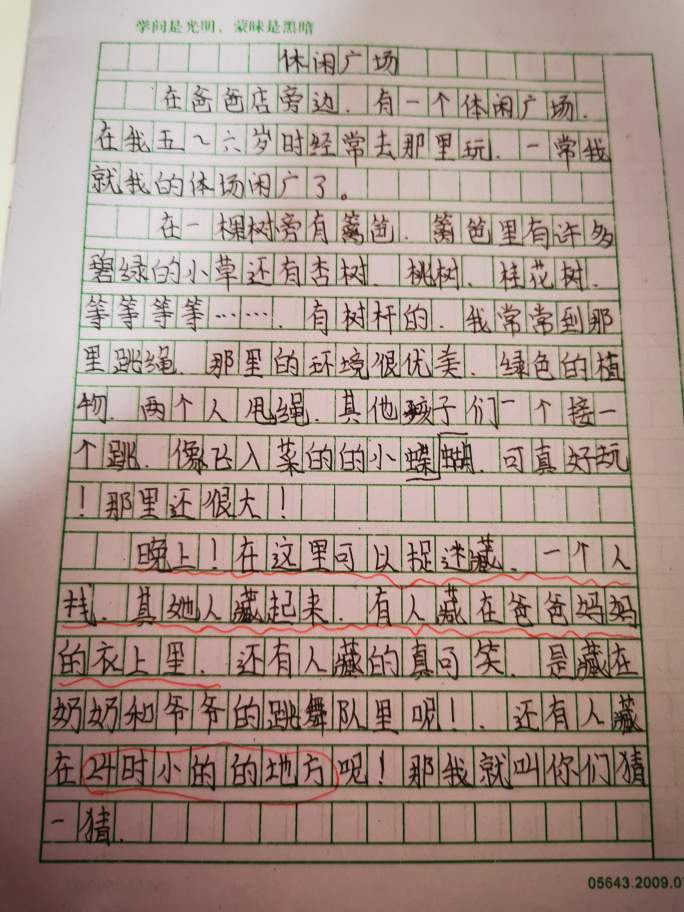 学问是光明，蒙昧是黑暗
休闲广场
在爸爸店旁边.有一个体闲广场.
在我五~六岁时经常去那里玩.一常我
就我的体场闲广了。
在一棵树旁有篱笆.篱笆里有许多
碧绿的小草还有杏树.桃树.桂花树.
等等等等…….有树杆的.我常常到那
里跳绳.那里的环境很优美.绿色的植
物.两个人甩绳.其他孩子们一个接一
个跳.像飞入菜的的小蝶蝴.可真好玩
!那里还很大!
晚上!在这里可以捉迷藏.一个人
找.其她人藏起来.有人藏在爸爸妈妈
的衣上里.还有人藏的真可笑.是藏在
奶奶和爷爷的跳舞队里呢!.还有人藏
在24时小的的地方呢!那我就叫你们猜
一猜.
05643.2009.07